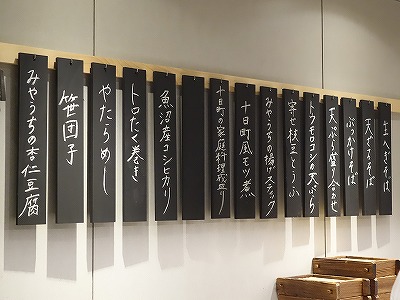 生へぎそば
天ざるそば
ぶっかけそば
天ぷら盛り合わせ
トウモロコシの天ぷら
寄せ枝豆とうふ
みやうちの揚げスティック
十日町風モツ煮
十日町の家庭料理盛り
魚沼産コシヒカリ
トロたく巻き
やたらめし
笹団子
みやうちの杏仁豆腐